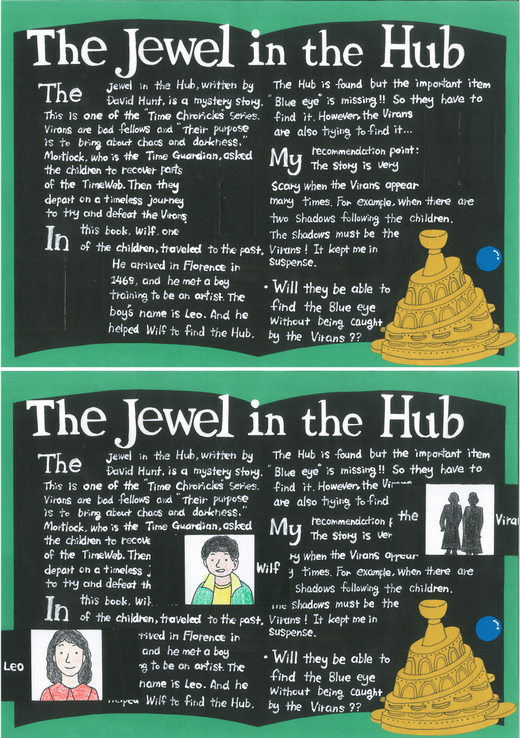 The Jewel in the Hub
The Jewel in the Hub, written by
David Hunt, is a mystery story.
This is one of the "Time Chronicles" Series.
Virans are bad fellows and "Their purpose
is to bring about chaos and darkness."
Mortlock, who is the Time Guardian, asked
the children to recover parts
of the TimeWeb. Then they
depart on a timeless journey
to try and defeat the Virans
In this book, Wilf, one
of the children, traveled to the past,
He arrived in Florence in
1469, and he met a boy
training to be an artist. The
boy's name is Leo. And he
helped Wilf to find the Hub.
The Hub is found but the important item
"Blue eye" is missing!! So they have to
find it. However, the Virans
are also trying to find it...
My recommendation point:
The story is very
Scary when the Virans appear
many times. For example, when there are
two Shadows following the children.
The Shadows must be the
Virans! It kept me in
suspense.
• Will they be able to
find the Blue eye
Without being caught
by the Virans ??
The Jewel in the Hub
The Jewel in the Hub, written by
David Hunt, is a mystery story.
This is one of the "Time Chronicles" Series.
Virans are bad fellows and "Their purpose
is to bring about chaos and darkness."
Mortlock, who is the Time Guardian, asked
the children to recove
of the TimeWeb. Then
depart on a timeless j
to try and defeat th
Wilf
In this book, Wil
of the children, traveled to the past,
rived in Florence in
and he met a boy
ng to be an artist. The
name is Leo. And he
helped Wilf to find the Hub.
Leo
The Hub is found but the important item
"Blue eye" is missing!! So they have to
find it. However, the Vi
are also trying to find
the Viran
My recommendation p
The story is ver
y when the Virans appear
y times. For example, when there are
Shadows following the children.
the Shadows must be the
Virans! It kept me in
suspense.
• Will they be able to
find the Blue eye
Without being caught
by the Virans ??